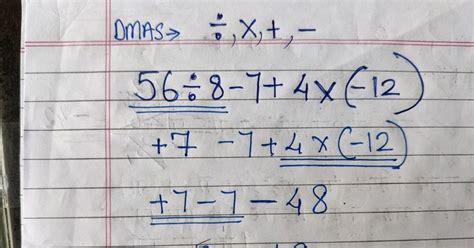 DMAS→ ÷, ×, +, −
56÷8−7+4×(−12)
+7 −7+4×(−12)
+7−7−48